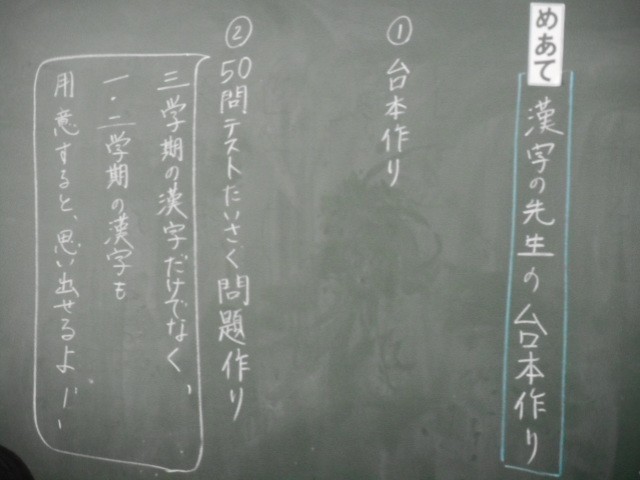 めあて
漢字の先生の台本作り
① 台本作り
② 50問テストたいさく問題作り
三学期の漢字だけでなく、
一・二学期の漢字も
用意すると、思い出せるよ！！